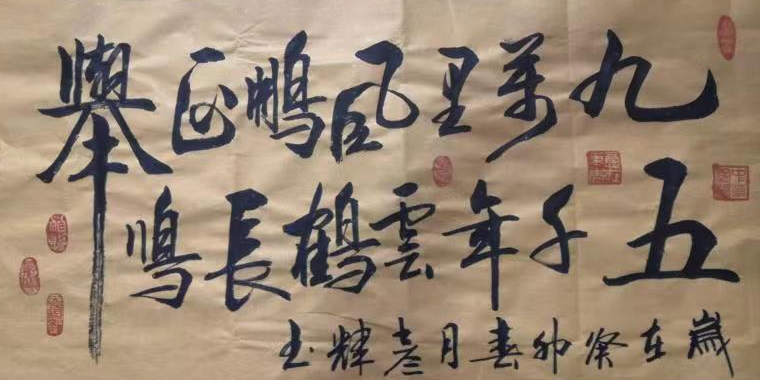 九萬里風鵬正舉
五千年雲鶴長鳴
歲在癸卯春月輝书